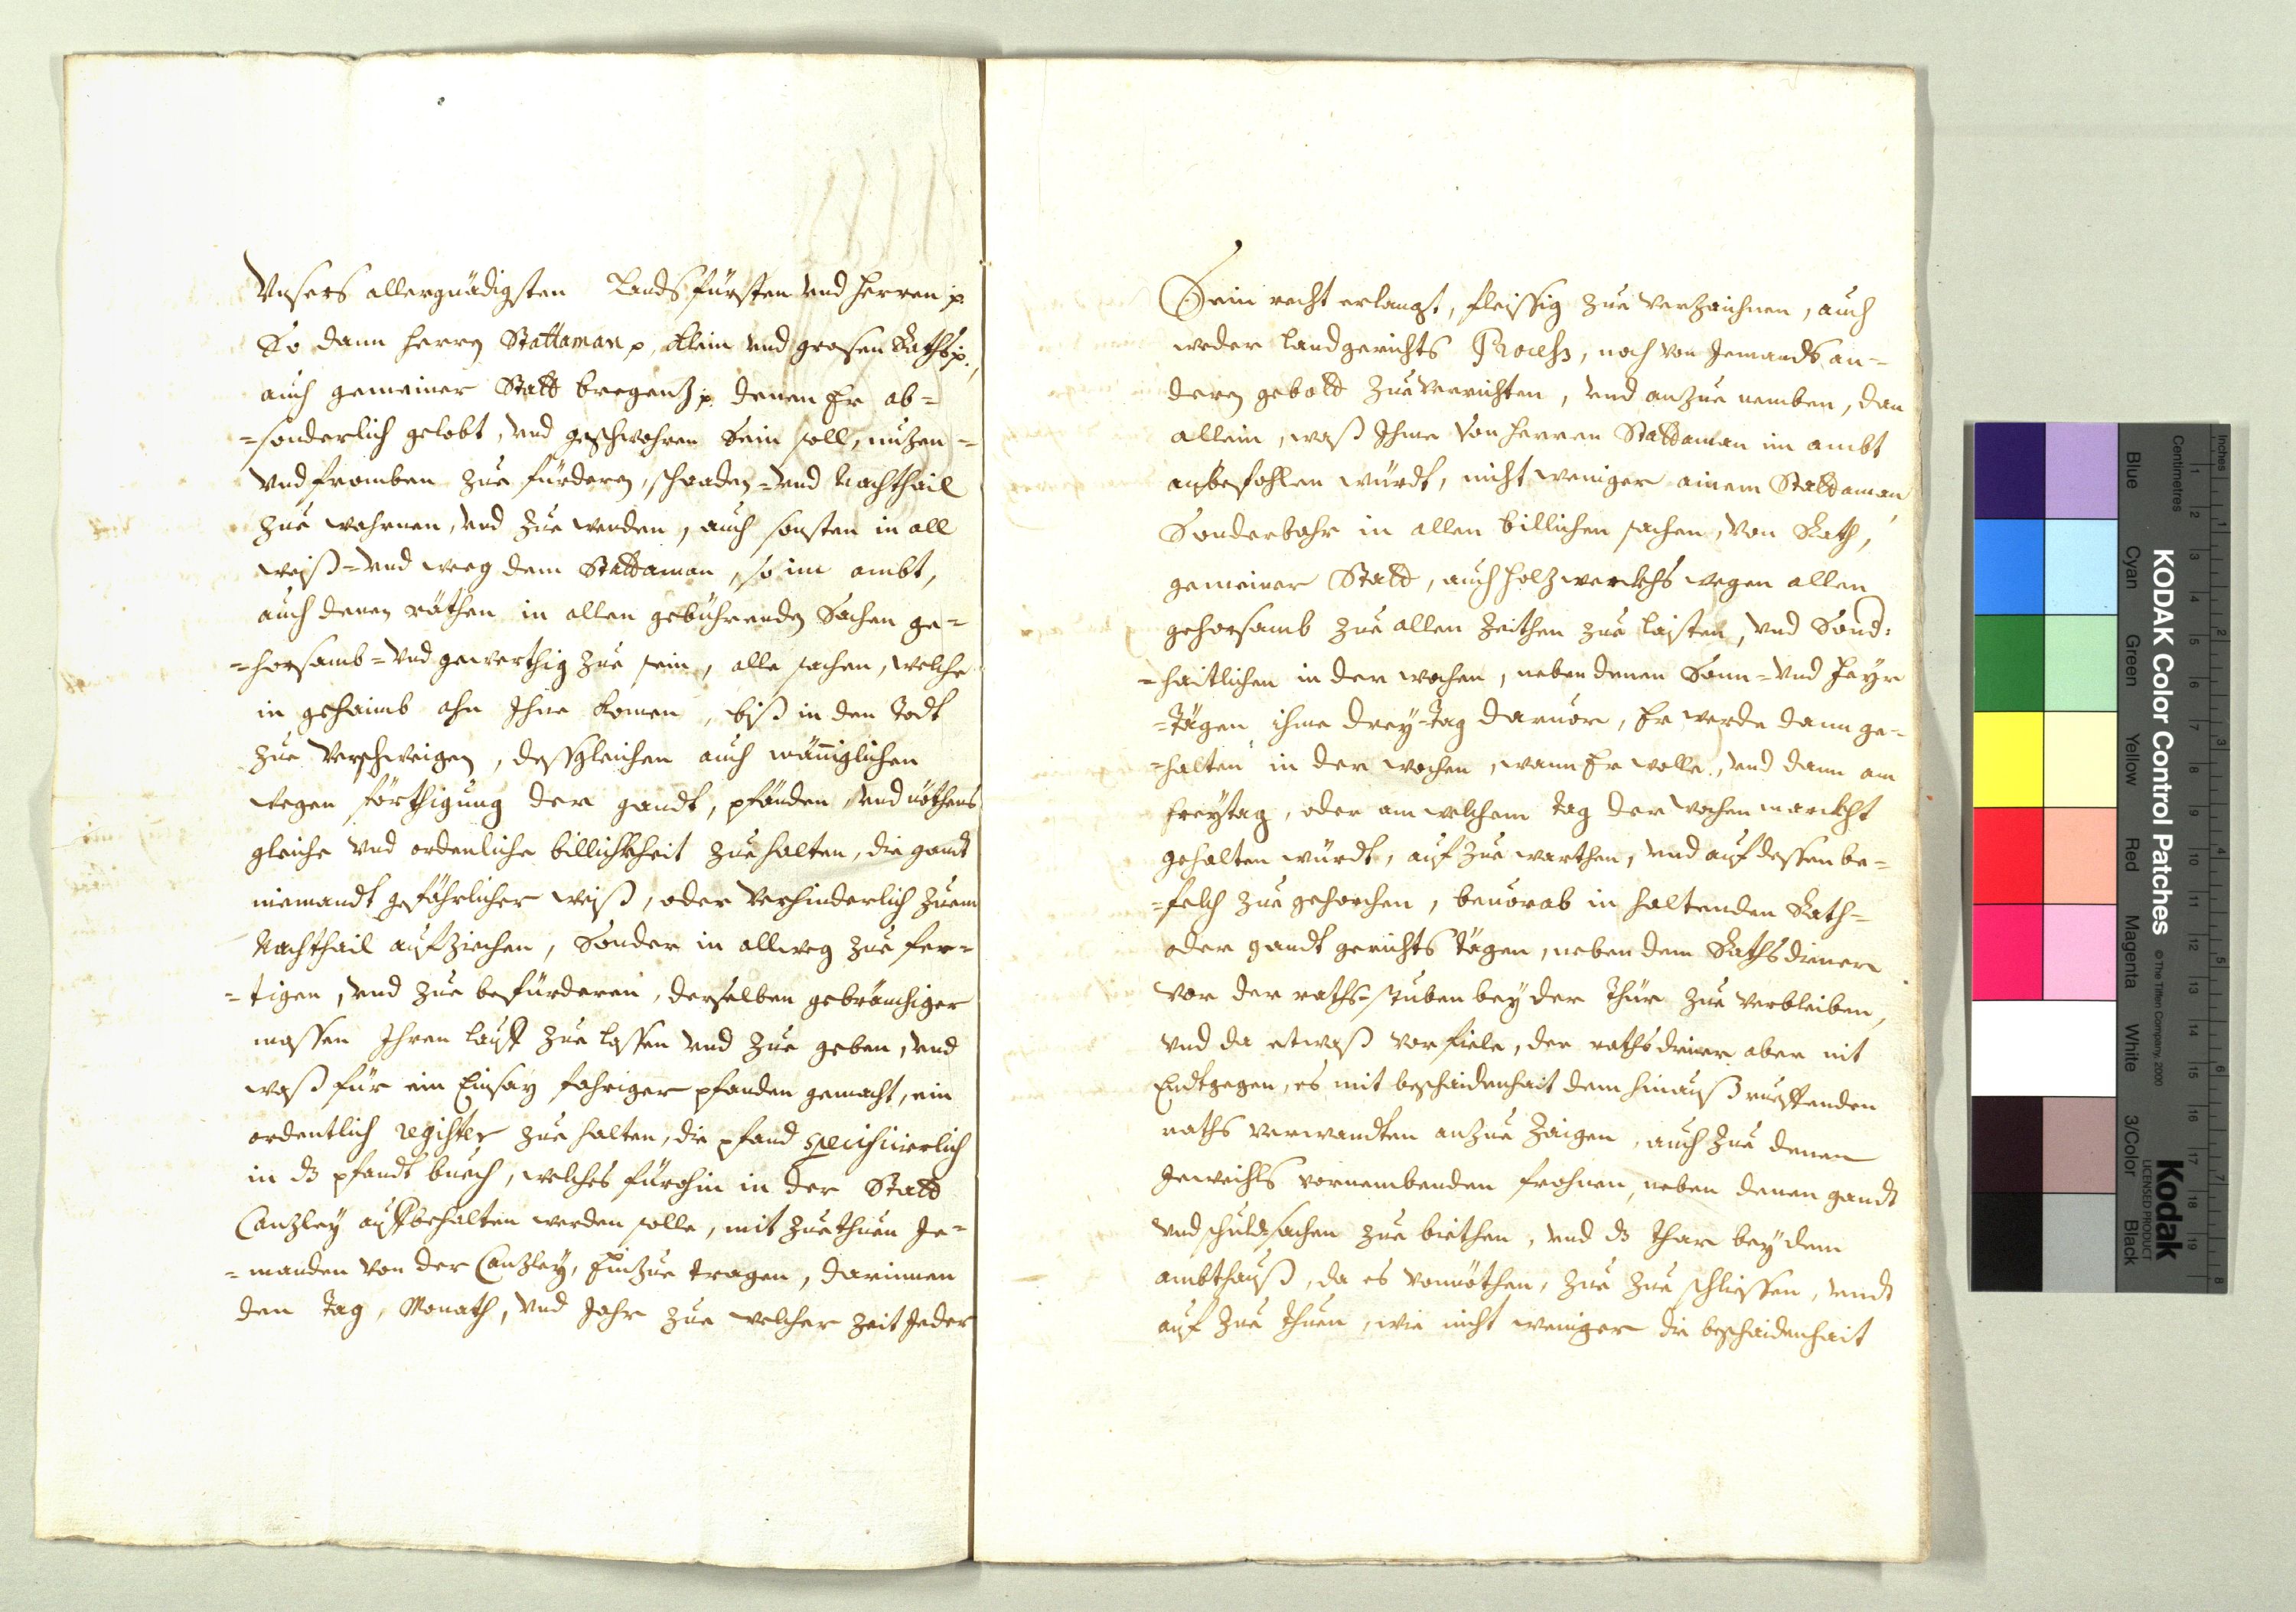 Unsers allergnädigsten Landsfürsten und Herren p.
So dann Herren Stattaman p, klein und grosen Raths p.,
auch gemeiner Statt Bregentz p. denen Er ab=
=sonderlich gelobt, und geschwohren Sein soll, nuzen=
und fromben zue fürderen, schaaden= und Nachthail
zue wahrnen, und zue wenden, auch sonsten in all
weiß= und weeg dem Stattaman, so im ambt,
auch denen räthen in allen gebührenden Sachen ge=
=horsamb= und gewerthig zue sein, alle sachen, welche
in gehaimb ahn Ihne komen, biß in den Todt
zue verschweigen, dessgleichen auch mäniglichen
wegen förthigung der gandt, pfänden, und nöthens
gleiche und ordenliche billichkheit zue halten, die gandt
niemandt gefährlicher weiß, oder verhinderlich zuem
Nachthail aufziechen, Sonder in allweg zue fer=
=tigen, und zue befürderen, derselben gebräuchiger
massen Ihren lauff zue lassen und zue geben, und
waß für ein Einsaz fahriger pfanden gemacht, ein
ordentlich register zue halten, die pfand specificierlich
in dz pfandt buech, welches fürohin in der Statt
Canzley auffbehalten werden solle, mit zuethuen Je=
=manden von der Canzley, Einzue tragen, darinnen
den Tag, Monath, und Jahr zue welcher zeit Jeder
Sein recht erlangt, fleissig zue verzaichnen, auch
weder landgerichts Process, noch von Jemands an=
deren gebott zue verrichten, und anzue nemben, dan
allein, waß Ihme von Herren Stattaman im ambt
anbefohlen würdt, nicht weniger ainem Stattaman
Sonderbahr in allen billichen sachen, von Rath,
gemeiner Statt, auch holzwerckhs wegen allen
gehorsamb zue allen zeithen zue laisten, und Sond:
=haitlichen in der wochen, neben denen Sonn= und Feyr
=tägen, ihme drey=Tag darvor, Er werde dann ge=
=halten in der wochen, wann Er wolle, und dann am
freytag, oder am welchem tag der wochen marckht
gehalten würdt, auf zue warthen, und auf dessen be=
=felch zue gehorchen, bevorab in haltenden Rath=
oder gandt gerichts tägen, neben dem Rathsdiener
vor der raths=stuben bey der Thür zue verbleiben,
und da etwaß vorfiele, der rathsdiener aber nit
Endtgegen, es mit beschaidenhait dem hinauß rueffenden
raths verwandten anzue zaigen, auch zue denen
Jeweihls vornembenden frohnen, neben denen gandt
und schuldsachen zue biethen, und dz Thar bey dem
ambthauß, da es vonnöthen, zue zue schliessen, undt
auf zue thuen, wie nicht weniger die beschaidenhait
KODAK Color Control Patches
© The Tiffen Company, 2000
Kodak
LICENSED PRODUCT
Inches
Centimetres
Blue
Cyan
Green
Yellow
Red
Magenta
White
3/Color
Black